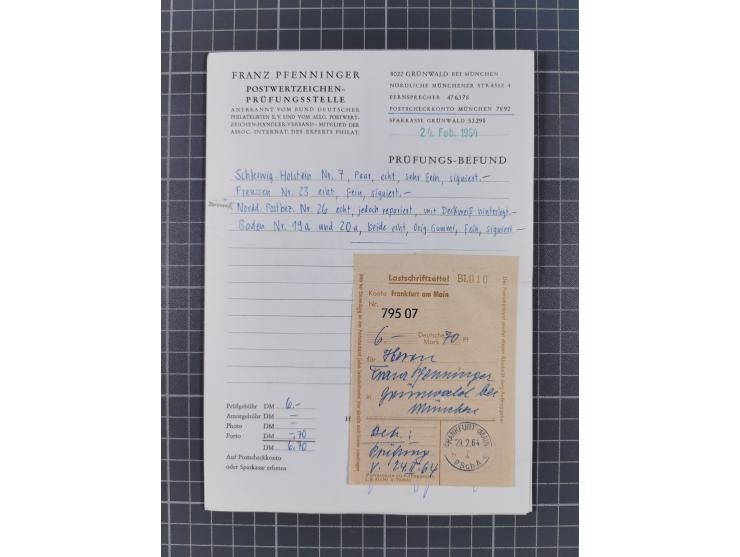 FRANZ PFENNINGER
POSTWERTZEICHEN-
PRÜFUNGSSTELLE
ANERKANNT VOM BUND DEUTSCHER
PHILATELISTEN E.V. UND VOM ALLG. POSTWERT-
ZEICHEN-HÄNDLER-VERBAND - MITGLIED DER
ASSOC. INTERNAT. DES EXPERTS PHILAT.
8022 GRÜNWALD BEI MÜNCHEN
NÖRDLICHE MÜNCHENER STRASSE 4
FERNSPRECHER 476378
POSTSCHECKKONTO MÜNCHEN 7892
SPARKASSE GRÜNWALD 53298
24. Feb. 1964
PRÜFUNGS-BEFUND
Schleswig-Holstein Nr. 7, Paar, echt, sehr fein, signiert.-
Preussen Nr. 23 echt, fein, signiert.-
Nordd. Postbez. Nr. 26 echt, jedoch repariert, mit Deckweiß hinterlegt.-
Baden Nr. 19a und 20a, beide echt, Orig. Gummi, fein, signiert.-
Lastschriftzettel Bl.010
Konto Frankfurt am Main
Nr. 795 07
6.- Deutsche Mark 70 Pf
für Herrn
Franz Pfenninger
in Grünwald bei
München
Betr.:
Prüfung
v. 24.II.64
FRANKFURT (MAIN)
29.2.64
PSchA
Prüfgebühr DM 6.-
Attestgebühr DM -
Photo DM -
Porto DM -,70
DM 6,70
Auf Postscheckkonto
oder Sparkasse erbeten